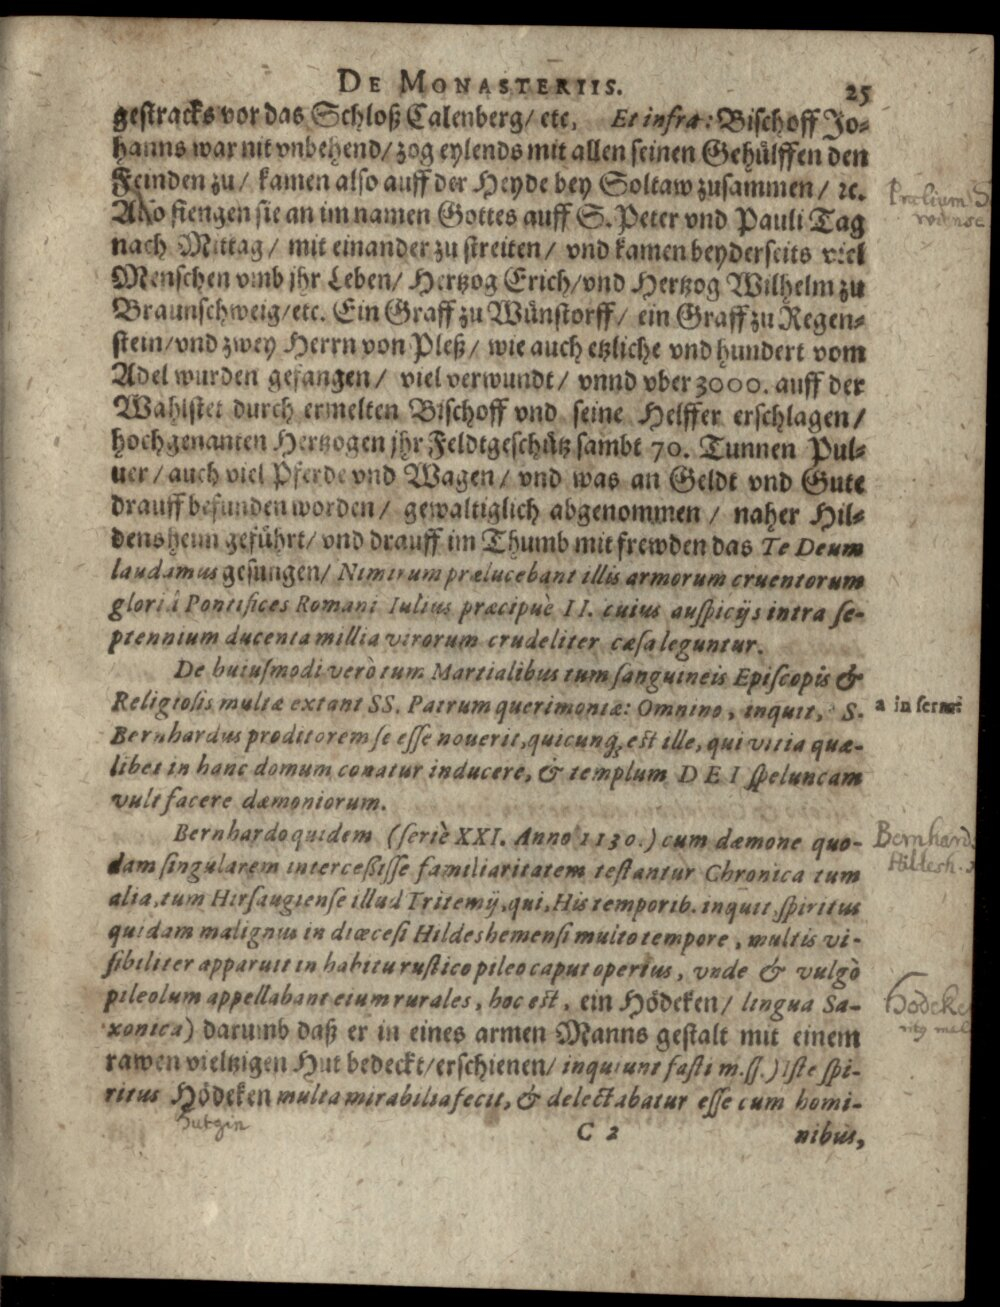 DE MONASTERIIS. 25
gestracks vor das Schloß Calenberg/ etc, Et infra: Bischoff Jo-
hanns war nit vnbehend/ zog eylends mit allen seinen Gehülffen den
Feinden zu/ kamen also auff der Heyde bey Soltaw zusammen/ ꝛc.
Also fiengen sie an im namen Gottes auff S. Peter vnd Pauli Tag
nach Mittag/ mit einander zu streiten/ vnd kamen beyderseits viel
Menschen vmb jhr Leben/ Hertzog Erich/ vnd Hertzog Wilhelm zu
Braunschweig/ etc. Ein Graff zu Wünstorff/ ein Graff zu Regen-
stein/ vnd zwey Herrn von Pleß/ wie auch etzliche vnd hundert vom
Adel wurden gefangen/ viel verwundt/ vnnd vber 3000. auff der
Wahlstet durch ermelten Bischoff vnd seine Helffer erschlagen/
hochgenanten Hertzogen jhr Feldtgeschütz sambt 70. Tunnen Pul-
uer/ auch viel Pferde vnd Wagen/ vnd was an Geldt vnd Gute
drauff befunden worden/ gewaltiglich abgenommen/ naher Hil-
densheim geführt/ vnd drauff im Thumb mit frewden das Te Deum
laudamus gesungen/ Nimirum prælucebant illis armorum cruentorum
gloriâ Pontifices Romani Iulius præcipuè II. cuius auspicijs intra se-
ptennium ducenta millia virorum crudeliter cæsa leguntur.
De huiusmodi verò tum Martialibus tum sanguineis Episcopis &
Religiosis multæ extant SS. Patrum querimoniæ: Omnino, inquit, S. a in serm
Bernhardus proditorem se esse nouerit, quicunq; est ille, qui vitia quæ-
libet in hanc domum conatur inducere, & templum DEI speluncam
vult facere dæmoniorum.
Bernhardo quidem (seriè XXI. Anno 1130.) cum dæmone quo-
dam singularem intercessisse familiaritatem testantur Chronica tum
alia, tum Hirsaugiense illud Tritemij, qui, His temporib. inquit, spiritus
quidam malignus in diœcesi Hildeshemensi multo tempore, multis vi-
sibiliter apparuit in habitu rustico pileo caput opertus, vnde & vulgò
pileolum appellabant eium rurales, hoc est, ein Hödeken/ lingua Sa-
xonica) darumb daß er in eines armen Manns gestalt mit einem
rawen vieltzigen Hut bedeckt/ erschienen/ inquiunt fasti m.ss.) Iste spi-
ritus Hödeken multa mirabilia fecit, & delectabatur esse cum homi-
C 2 nibus,
Prælium
Bernhard
Hildesh.
Hödeke
Hutgin